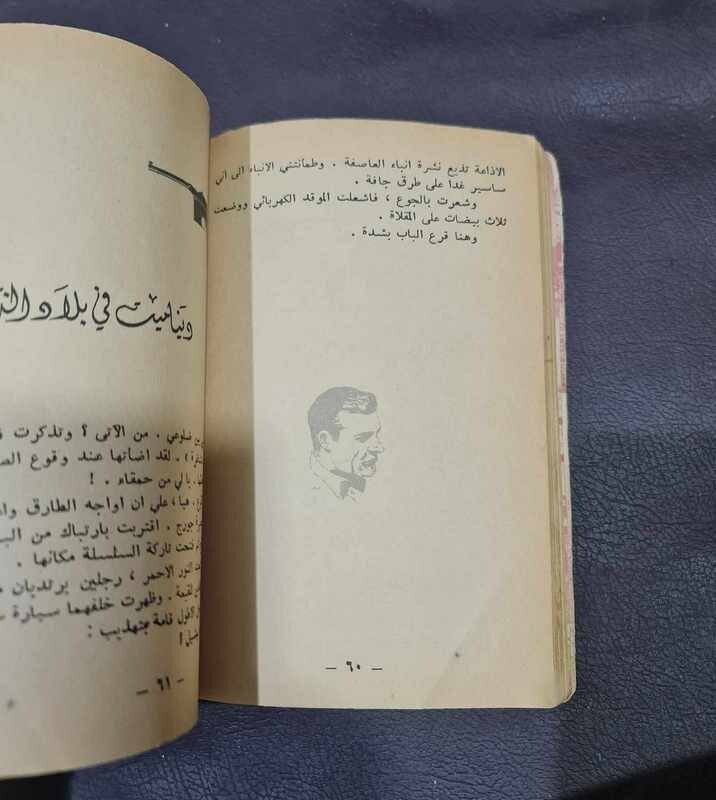 الاذاعة تذيع نشرة انباء العاصفة . وطمأنتني الانباء الى اني
ساسير غدا على طرق جافة .
وشعرت بالجوع ، فاشعلت الموقد الكهربائي ووضعت
ثلاث بيضات على المقلاة .
وهنا قرع الباب بشدة .
— ٦٠ —
في بلاد
ضلوعي . من الآتى ؟ وتذكرت
لقد اضأتها عند وقوع
يا لي من حمقاء . !
هيا ، علي ان اواجه الطارق
جورج . اقتربت بارتباك من
فتحت تاركة السلسلة مكانها .
النور الاحمر ، رجلين يرتديان
وظهرت خلفهما سيارة
قامة بتهذيب :
— ٦١ —